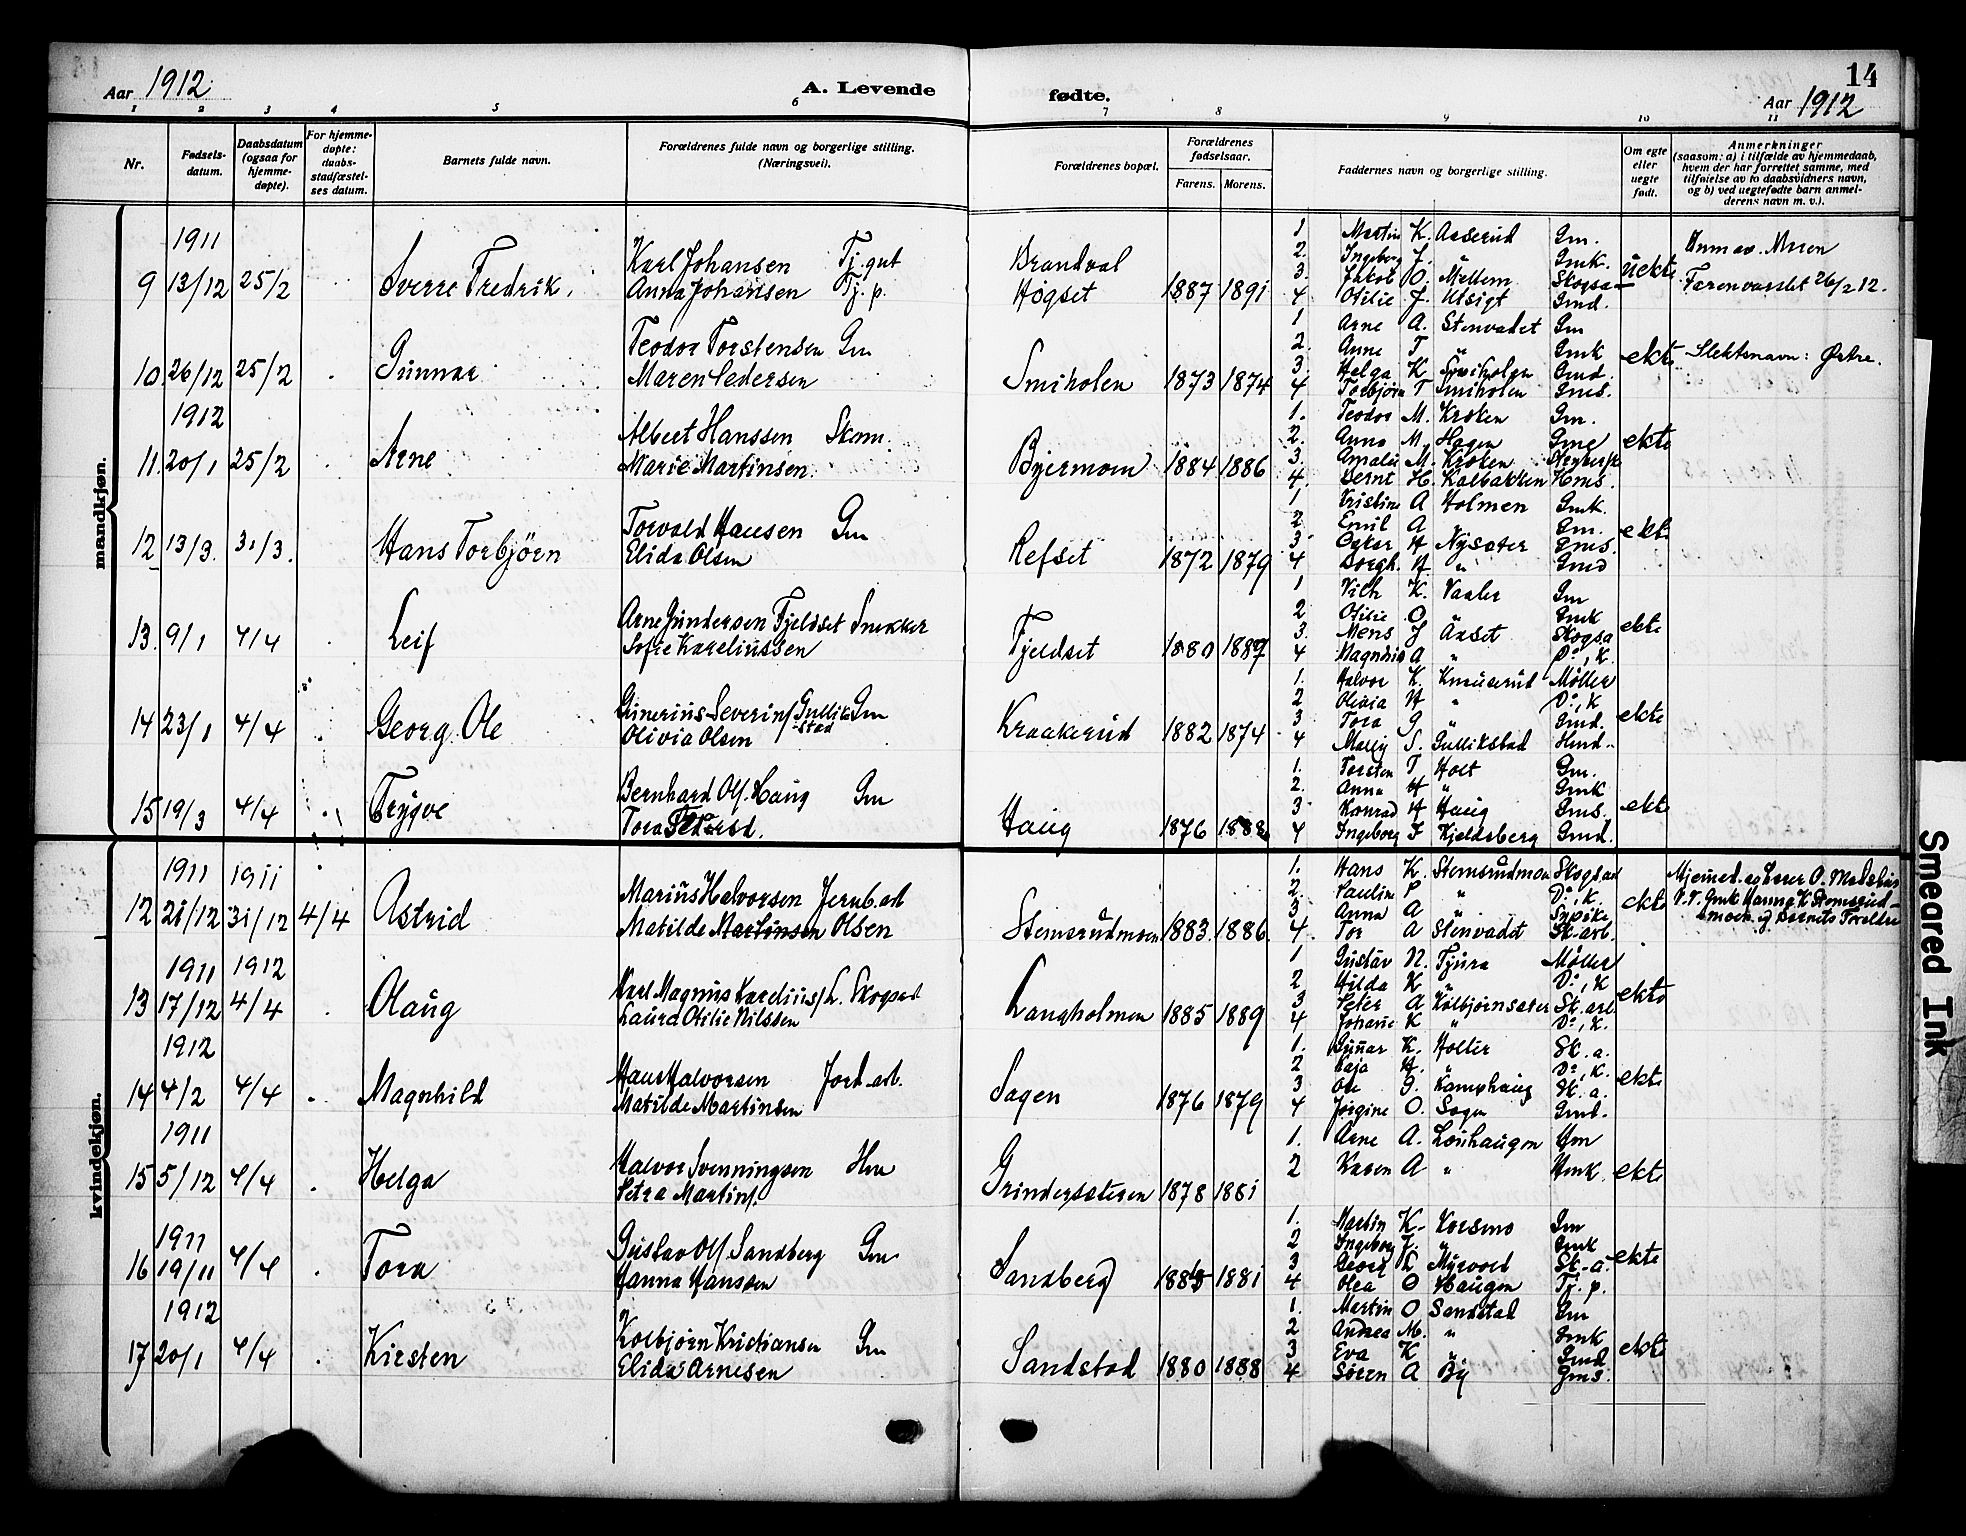 Aar 1912. A. Levende fødte. Aar 1912 14
1 2 3 4 5 6 7 8 9 10 11
Nr. Fødsels-datum. Daabsdatum (ogsaa for hjemme-døpte). For hjemme-døpte: daabs-stadfæstel-ses datum. Barnets fulde navn. Forældrenes fulde navn og borgerlige stilling. (Næringsvei). Forældrenes bopæl. Forældrenes fødselsaar. Farens. Morens. Faddernes navn og borgerlige stilling. Om egte eller uegte født. Anmerkninger (saasom: a) i tilfælde av hjemmedaab, hvem der har forrettet samme, med tilføielse av to daabsvidners navn, og b) ved uegtefødte barn anmel-derens navn m. v.).
mandkjøn.
1911
9 13/12 25/2 Sverre Fredrik. Karl Johansen Tj. gut
Anna Johansen Tj. p.
Brandval
Høgset 1887 1891
1. Martin K. Aaserud Gm.
2. Ingeborg J. " Gmk.
3. Jakob O. Mellem Skogsa
4 Otilie J. Utsigt Gmd.
uekte
Farenvarslet 26/2 12.
10. 26/12 25/2 Gunnar Teodor Torstensen Gm
Maren Pedersen
Smiholen 1873 1874
1 Arne A. Stenvadet Gm
2. Anne T " Gmk
3 Helga K Smiholen Gmd.
4 Torbjørn T Smiholen Gms.
ekte Slektsnavn: Østre.
1912
11. 20/1 25/2 Arne Albert Hanssen Skom.
Marie Martinsen.
Byermoen 1884 1886
1. Teodor M. Kroken Gm.
2. Anna M. Hagen
3. Amalie M. Kroken
4. Bernt H. Kalbakken Hms.
ekte
12 13/3. 31/3. Hans Torbjørn Torvald Hansen Gm
Elida Olsen
Refset 1872 1879
1 Kristine A Holmen Gmk.
2 Emil A Gm.
3 Oskar H Nysæter Gms.
4 Borgh. H " Gmd
ekte
13. 9/1 4/4 Leif Arne Gundersen Fjeldset Snekker
Sofie Kareliussen
Fjeldset 1880 1887
1 Vilh K. Vaaler Gm
2 Otilie O " Gmk
3. Mens J Aaset Skogsa
4 Magnhild A " Do, K.
ekte
14 23/1 4/4 Georg Ole Gunerius Severins/ Gullik-stad Gm
Olivia Olsen
Kraakerud 1882 1874
1. Halvor K. Knauserud Møller
2 Olivia H " Do, K
3 Tora G " Gmd.
4 Mally S. Gullikstad Hmd.
ekte
15 19/3 4/4 Trygve Bernhard Ols. Haug Gm
Tora
Haug 1876 1888
1. Torsten T Holt Gm.
2. Anna H " Gmk
3 Konrad H Haug Gms.
4 Ingeborg F Kjeldsberg Gmd.
ekte
kvindekjøn.
1911 1911
12 21/12 31/12 4/4 Astrid Marius Halvorsen Jernb. arb
Matilde Martinsen Olsen
Stemsrudmoen 1883. 1886.
1. Hans K. Stemsrudmoen Skogsad
2. Pauline P " Do, K.
3. Anna A " Spike
4. Tor A Stenvadet Sk-arb.
ekte
1911 1912
13 17/12 4/4 Olaug Karl Magnus Karelius/ L. Skogsad
Laura Otilie Nilssen
Langholmen 1885 1889
1 Gustav N. Tjura Møller
2 Hilda K " Do, K
3 Peter A Kolbjørnsæter Sk. arb
4 Johane K " Do, K.
ekte
1912
14 4/2 4/4 Magnhild Hans Halvorsen Jord. arb.
Matilde Martinsen
Sagen 1876 1879
1. Gunar K. Holter Sk. a.
2 Kaja H. " Do, K.
3 Ole G. Kamphaug Sk. a.
4 Jørgine O. Sagen Gmd.
ekte
1911
15 5/12 4/4 Helga Halvor Svenningsen Hm
Petra Martins/.
Grindersæteren 1878 1881
1. Arne A. Louhaugen Hm
2 Karen A " Hmk.
ekte
1911
16 19/11 4/4 Tora Gustav Ols/ Sandberg Gm
Hanna Hanssen
Sandberg 1881
1. Martin K. Korsmo Gm
2 Ingeborg J. " Gmk
3 Georg L Myrvold Sk-a.
4 Olea O Haugen Tj. p.
ekte
1912
17 20/1 4/4 Kirsten Kolbjørn Kristiansen Gm
Elida Arnesen
Sandstad 1880 1888
1. Martin O Sandstad Gm
2 Andrea M. " Gmk
3 Eva K " Gmd
4 Søren A By Gms.
ekte
Smeared Ink